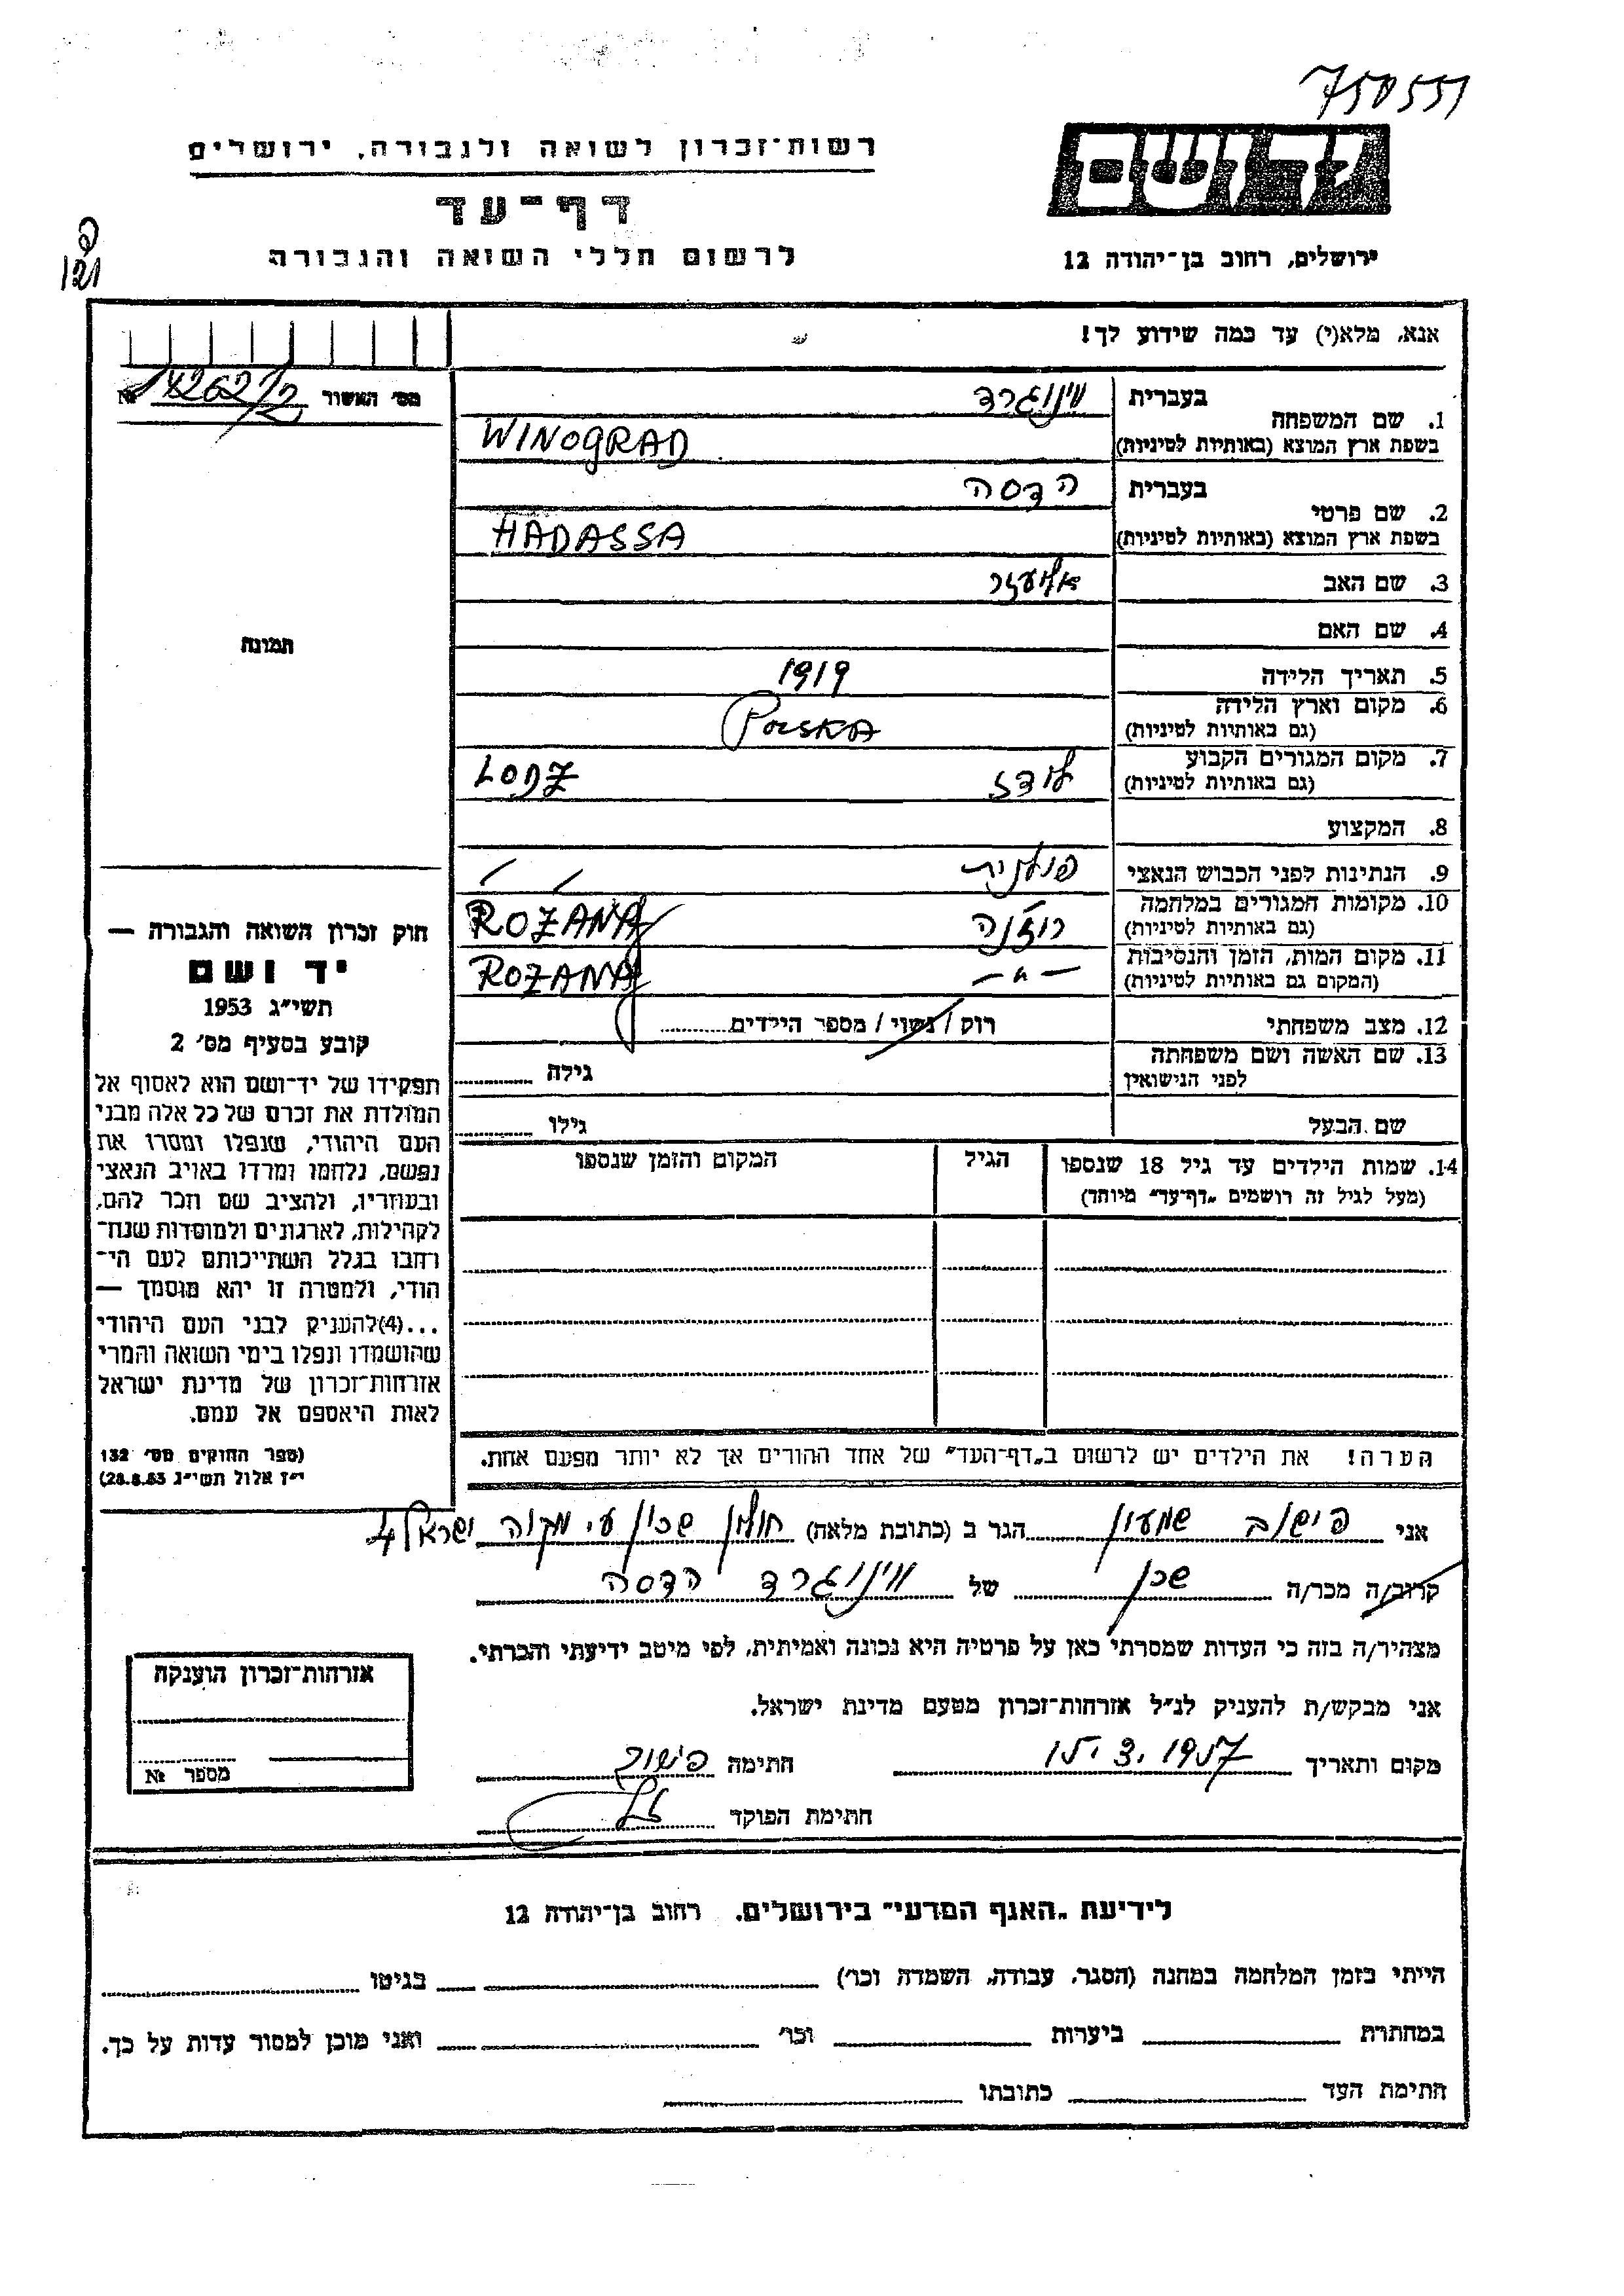 750551
רשות־זכרון לשואה ולגבורה, ירושלים
יד ושם
דף־עד
לרשום חללי השואה והגבורה
ירושלים, רחוב בן־יהודה 12
אנא, מלא(י) עד כמה שידוע לך!
מס׳ האשור №
1. שם המשפחה
בעברית
ווינוגרד
בשפת ארץ המוצא (באותיות לטיניות)
WINOGRAD
2. שם פרטי
בעברית
הדסה
בשפת ארץ המוצא (באותיות לטיניות)
HADASSA
3. שם האב
אליעזר
4. שם האם
5. תאריך הלידה
1919
6. מקום וארץ הלידה
(גם באותיות לטיניות)
POLSKA
7. מקום המגורים הקבוע
(גם באותיות לטיניות)
לודז LODZ
8. המקצוע
9. הנתינות לפני הכבוש הנאצי
פולנית
10. מקומות המגורים במלחמה
(גם באותיות לטיניות)
רוזנה ROZANA
11. מקום המות, הזמן והנסיבות
(המקום גם באותיות לטיניות)
—״— ROZANA
12. מצב משפחתי
רוק / נשוי / מספר הילדים
13. שם האשה ושם משפחתה
לפני הנישואין
גילה
שם הבעל
גילו
14. שמות הילדים עד גיל 18 שנספו
(מעל לגיל זה רושמים „דף־עד״ מיוחד)
הגיל
המקום והזמן שנספו
הערה! את הילדים יש לרשום ב„דף־העד״ של אחד ההורים אך לא יותר מפעם אחת.
תמונה
חוק זכרון השואה והגבורה —
יד ושם
תשי״ג 1953
קובע בסעיף מס׳ 2
תפקידו של יד־ושם הוא לאסוף אל
המולדת את זכרם של כל אלה מבני
העם היהודי, שנפלו ומסרו את
נפשם, נלחמו ומרדו באויב הנאצי
ובעוזריו, ולהציב שם וזכר להם,
לקהילות, לארגונים ולמוסדות שנח־
רבו בגלל השתייכותם לעם הי־
הודי, ולמטרה זו יהא מוסמך —
...(4)להעניק לבני העם היהודי
שהושמדו ונפלו בימי השואה והמרי
אזרחות־זכרון של מדינת ישראל
לאות היאספם אל עמם.
(ספר החוקים מס׳ 132
י״ז אלול תשי״ג 28.8.53)
אני פישוב שמעון הגר ב (כתובת מלאה) חולון שכון עי מקוה ישראל 4
קרוב/ה מכר/ה שכן של ווינוגרד הדסה
מצהיר/ה בזה כי העדות שמסרתי כאן על פרטיה היא נכונה ואמיתית, לפי מיטב ידיעתי והכרתי.
אני מבקש/ת להעניק לנ״ל אזרחות־זכרון מטעם מדינת ישראל.
מקום ותאריך 1957 חתימה
חתימת הפוקד
אזרחות־זכרון הוענקה
מספר №
לידיעת „האגף המדעי״ בירושלים. רחוב בן־יהודה 12
הייתי בזמן המלחמה במחנה (הסגר, עבודה, השמדה וכו׳) בגיטו
במחתרת ביערות וכו׳ ואני מוכן למסור עדות על כך.
חתימת העד כתובתו